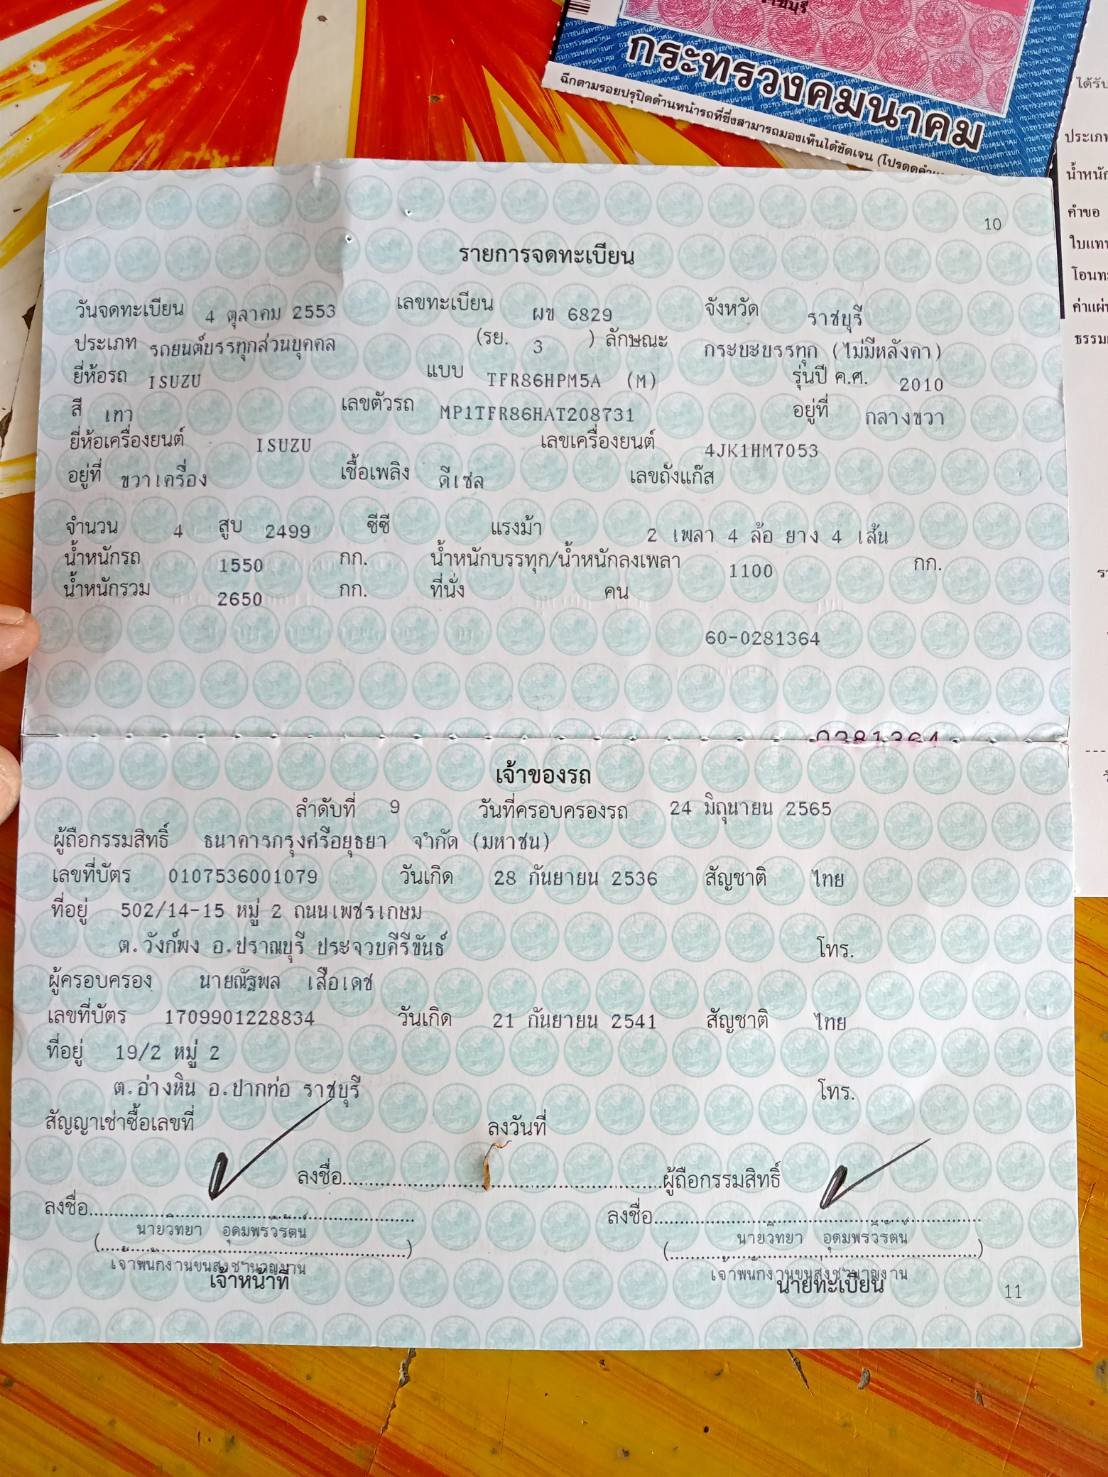 ราชบุรี
กระทรวงคมนาคม
ฉีกตามรอยปรุปิดด้านหน้ารถที่ซึ่งสามารถมองเห็นได้ชัดเจน
ได้รับ
น้ำหนัก
คำขอ
10
รายการจดทะเบียน
วันจดทะเบียน 4 ตุลาคม 2553 เลขทะเบียน ผข 6829 จังหวัด ราชบุรี
ประเภท รถยนต์บรรทุกส่วนบุคคล (รย. 3 ) ลักษณะ กระบะบรรทุก (ไม่มีหลังคา)
ยี่ห้อรถ ISUZU แบบ TFR86HPM5A (M) รุ่นปี ค.ศ. 2010
สี เทา เลขตัวรถ MP1TFR86HAT208731 อยู่ที่ กลางขวา
ยี่ห้อเครื่องยนต์ ISUZU เลขเครื่องยนต์ 4JK1HM7053
อยู่ที่ ขวาเครื่อง เชื้อเพลิง ดีเซล เลขถังแก๊ส
จำนวน 4 สูบ 2499 ซีซี แรงม้า 2 เพลา 4 ล้อ ยาง 4 เส้น
น้ำหนักรถ 1550 กก. น้ำหนักบรรทุก/น้ำหนักลงเพลา 1100 กก.
น้ำหนักรวม 2650 กก. ที่นั่ง คน
60-0281364
0281364
เจ้าของรถ
ลำดับที่ 9 วันที่ครอบครองรถ 24 มิถุนายน 2565
ผู้ถือกรรมสิทธิ์ ธนาคารกรุงศรีอยุธยา จำกัด (มหาชน)
เลขที่บัตร 0107536001079 วันเกิด 28 กันยายน 2536 สัญชาติ ไทย
ที่อยู่ 502/14-15 หมู่ 2 ถนนเพชรเกษม
ต.วังก์พง อ.ปราณบุรี ประจวบคีรีขันธ์ โทร.
ผู้ครอบครอง นายณัฐพล เสือเดช
เลขที่บัตร 1709901228834 วันเกิด 21 กันยายน 2541 สัญชาติ ไทย
ที่อยู่ 19/2 หมู่ 2
ต.อ่างหิน อ.ปากท่อ ราชบุรี โทร.
สัญญาเช่าซื้อเลขที่ ลงวันที่
ลงชื่อ..........ผู้ถือกรรมสิทธิ์
ลงชื่อ.......... ลงชื่อ..........
นายวิทยา อุดมพรวิรัตน์ นายวิทยา อุดมพรวิรัตน์
(..........) (..........)
เจ้าพนักงานขนส่งชำนาญงาน เจ้าพนักงานขนส่งชำนาญงาน
เจ้าหน้าที่ นายทะเบียน
11